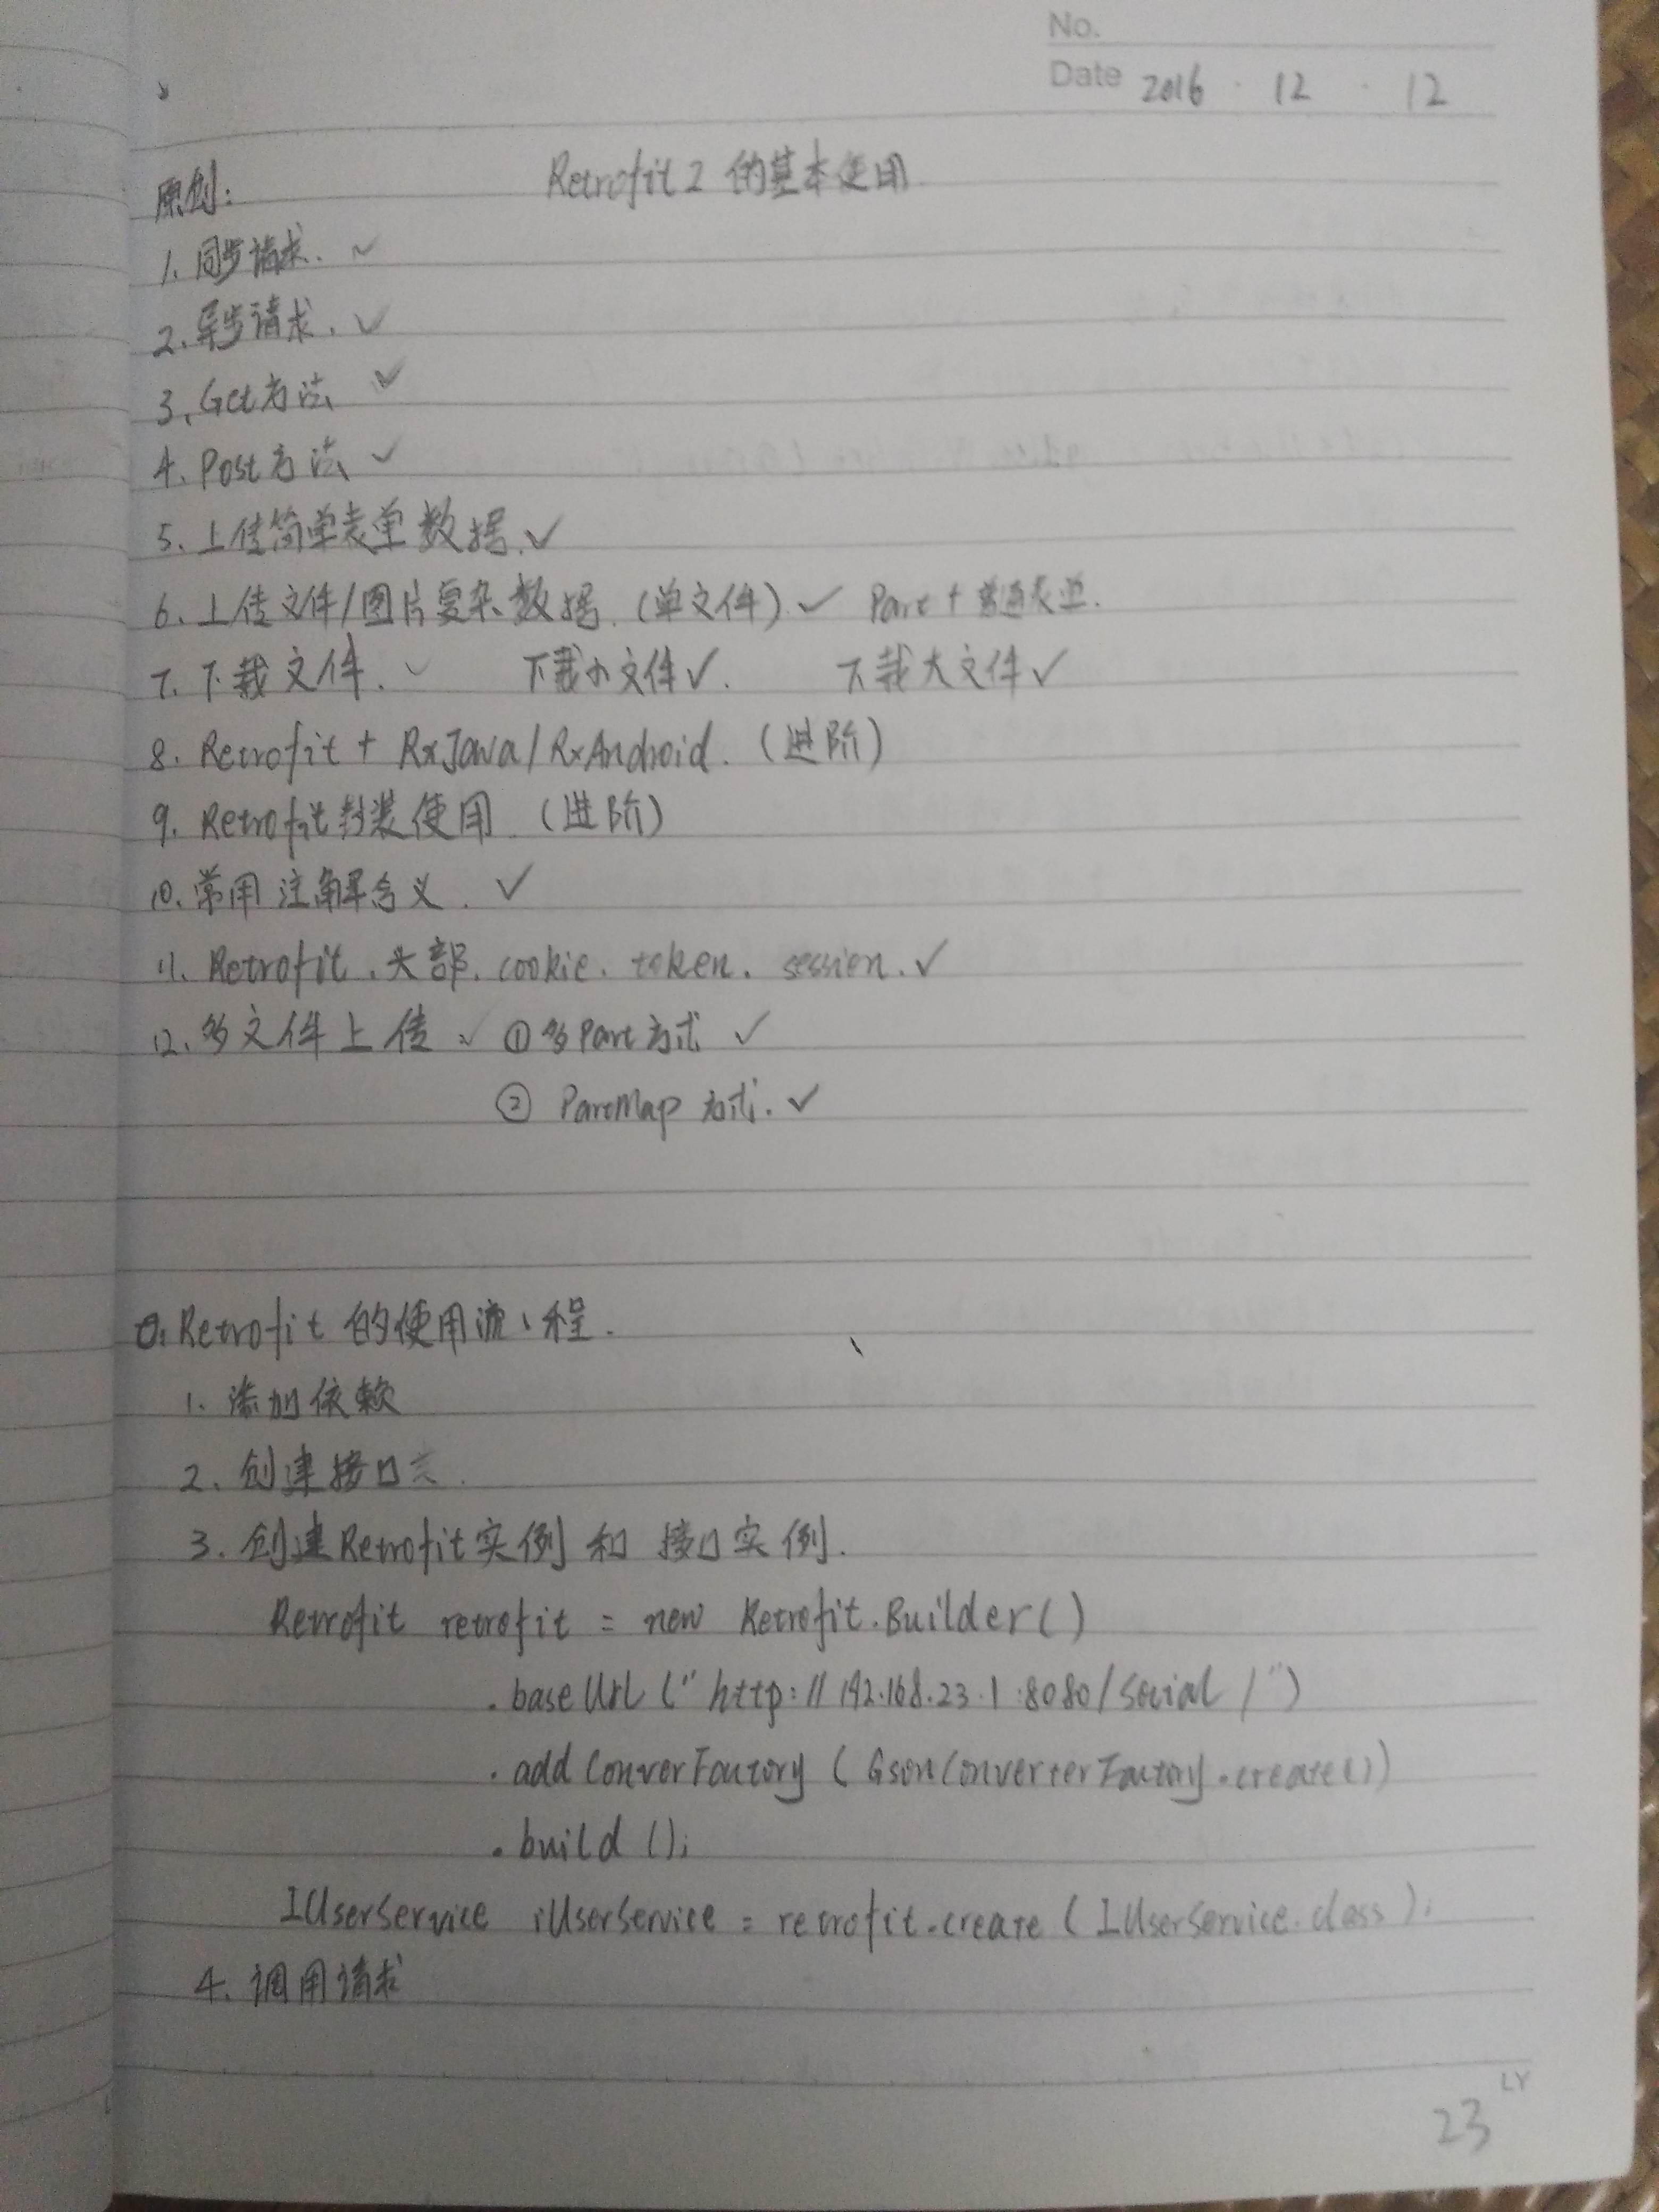 No.
Date 2016 · 12 · 12
原创: Retrofit 2 的基本使用
1. 同步请求. ✓
2. 异步请求. ✓
3. Get方法 ✓
4. Post方法 ✓
5. 上传简单表单数据. ✓
6. 上传文件/图片复杂数据. (单文件). ✓ Part + 普通表单.
7. 下载文件. ✓ 下载小文件 ✓. 下载大文件 ✓
8. Retrofit + RxJava / RxAndroid. (进阶)
9. Retrofit封装使用. (进阶)
10. 常用注解含义. ✓
11. Retrofit. 头部. cookie. token. session. ✓
12. 多文件上传 ✓ ① 多Part方式 ✓
② PartMap 方式. ✓
0. Retrofit 的使用流程.
1. 添加依赖
2. 创建接口
3. 创建Retrofit实例 和 接口实例.
Retrofit retrofit = new Retrofit.Builder()
.baseUrl ("http://192.168.23.1:8080/social/")
.addConverFactory (GsonConverterFactory.create())
.build ();
IUserService iUserService = retrofit.create (IUserService.class);
4. 调用请求
LY
23